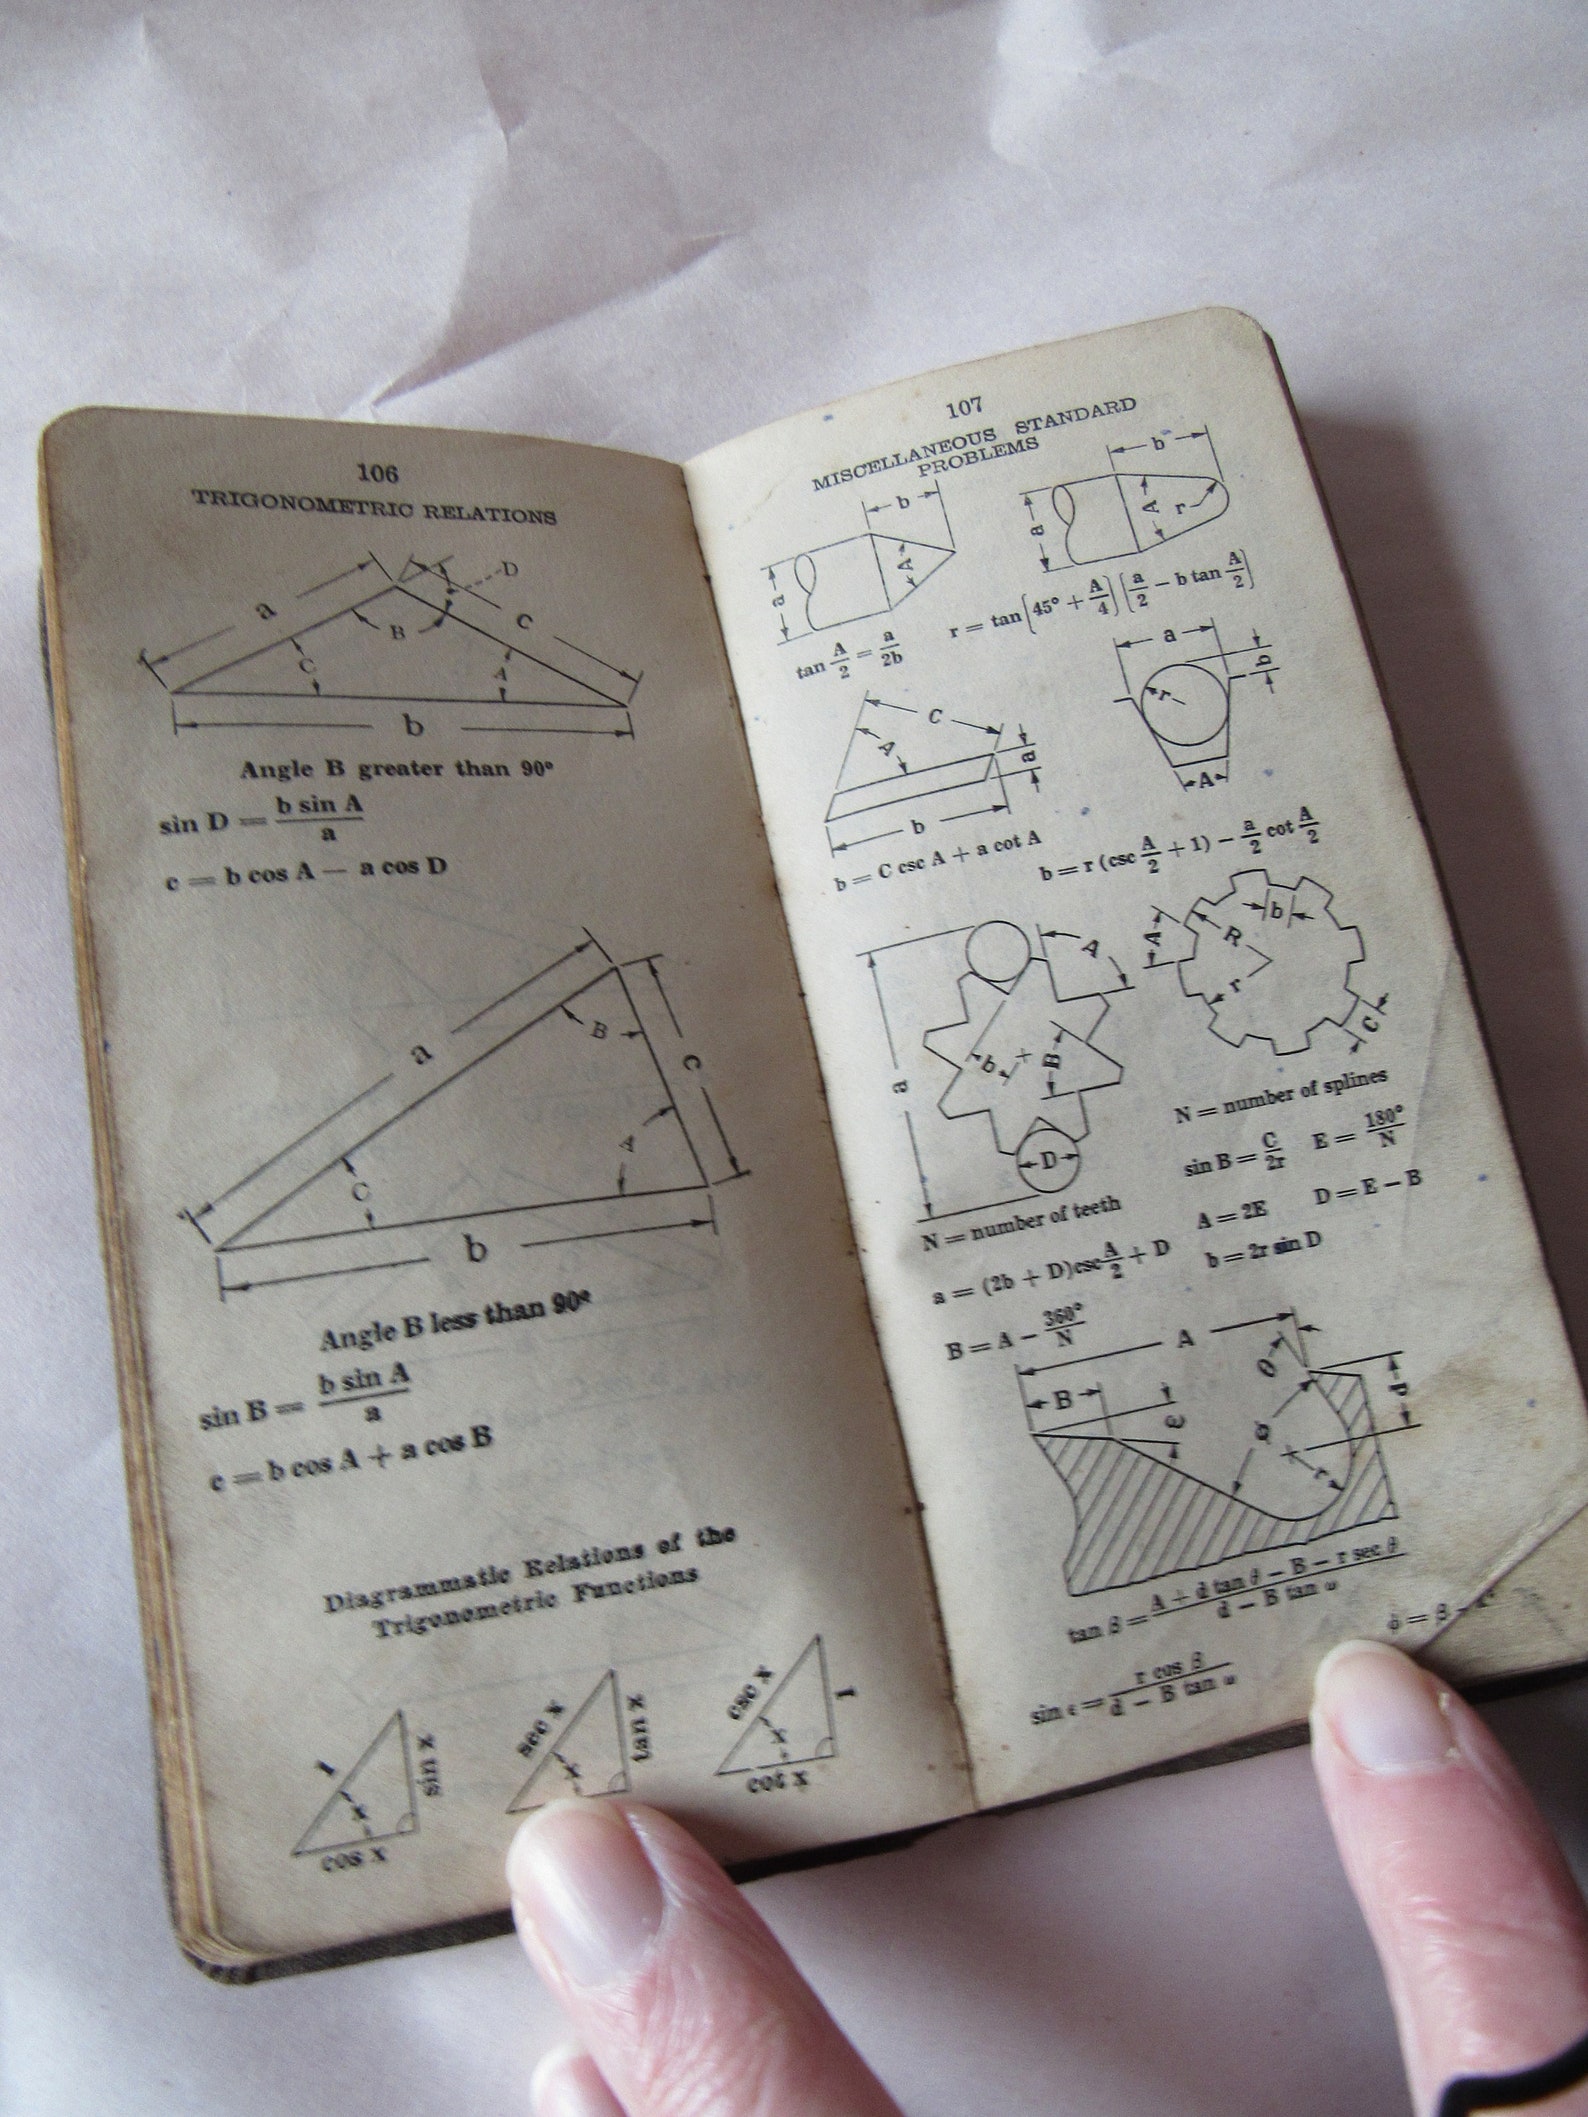 106
TRIGONOMETRIC RELATIONS
a
D
B
c
C
A
b
Angle B greater than 90°
sin D = b sin A / a
c = b cos A — a cos D
a
B
c
A
C
b
Angle B less than 90°
sin B = b sin A / a
c = b cos A + a cos B
Diagrammatic Relations of the
Trigonometric Functions
1
x
sin x
cos x
sec x
x
tan x
csc x
x
1
cot x
107
MISCELLANEOUS STANDARD
PROBLEMS
b
a
A
b
a
A
r
tan A/2 = a/2b
r = tan(45° + A/4)(a/2 − b tan A/2)
C
A
a
b
a
b
r
A
b = C csc A + a cot A
b = r (csc A/2 + 1) − a/2 cot A/2
a
A
b
B
D
A
R
b
r
C
N = number of teeth
a = (2b + D) csc A/2 + D
B = A − 360°/N
N = number of splines
sin B = C/2r E = 180°/N
A = 2E D = E − B
b = 2r sin D
A
B
r
d
tan β = A + d tan θ − B − r sec θ / d − B tan ω
sin ε = r cos β / d − B tan ω
ϕ = β −